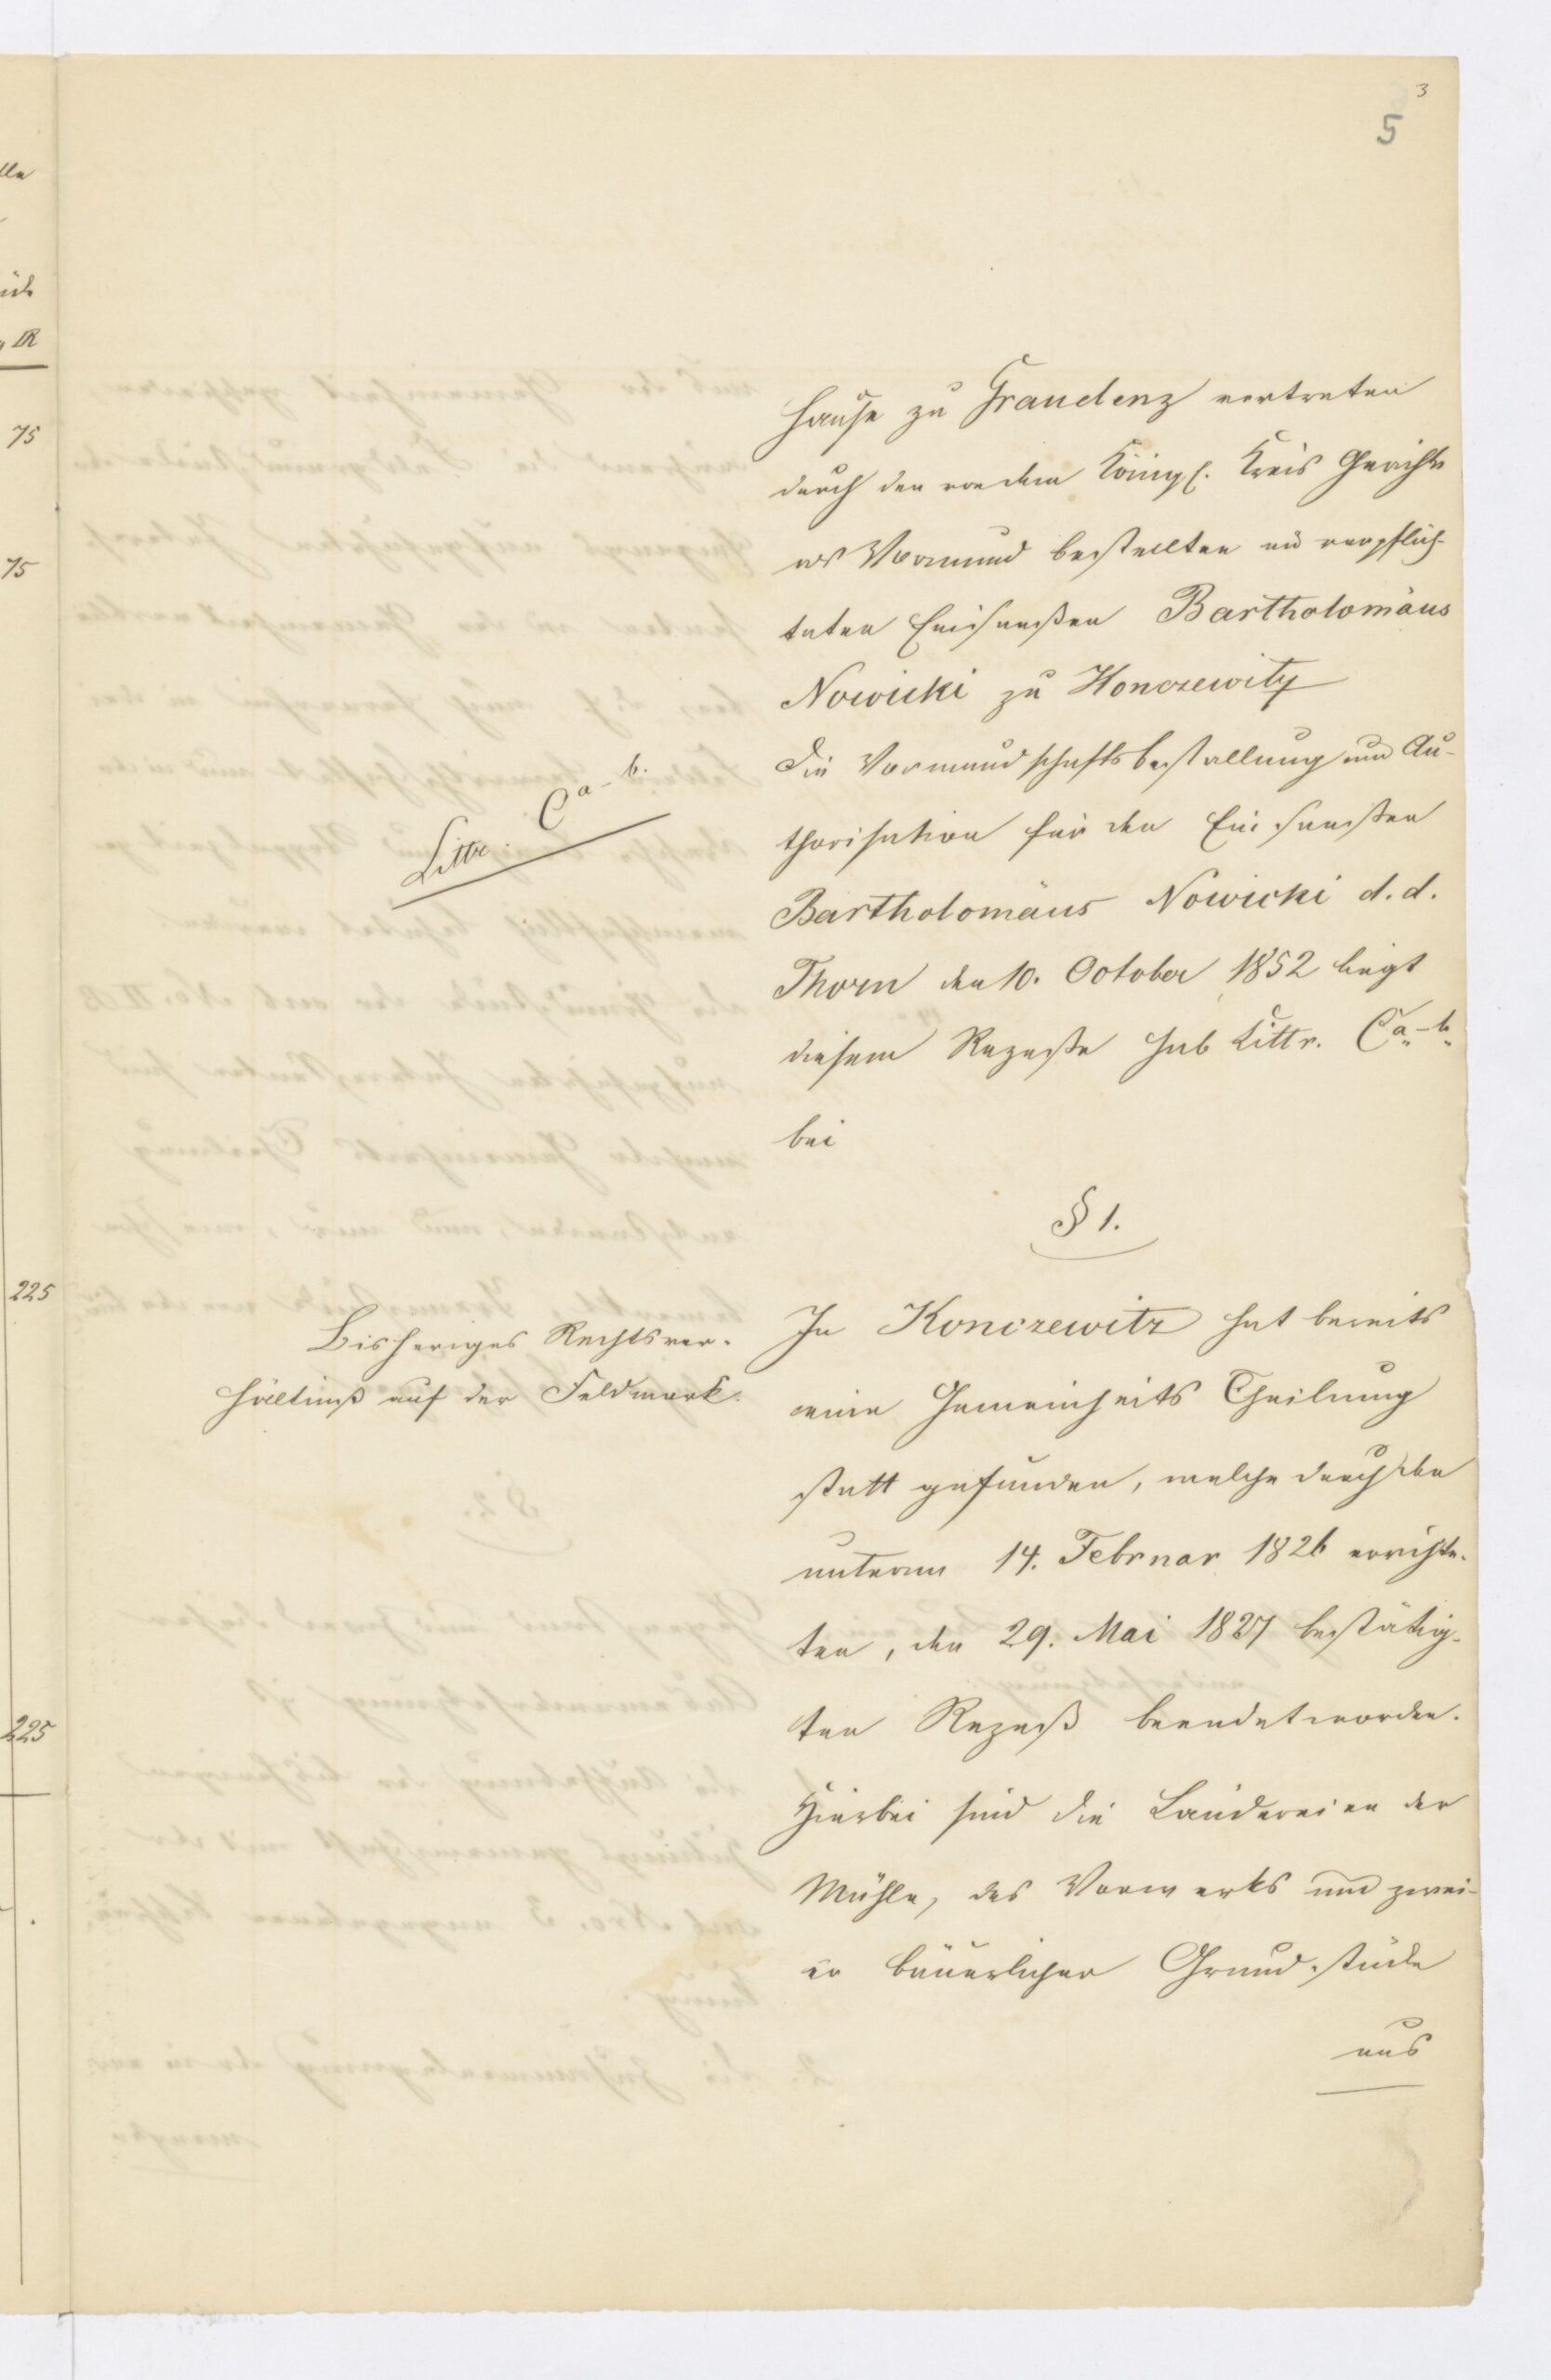 3
5
hause zu Graudenz vertreten
durch den von dem Königl. Kreis Gericht
als Vormund bestellten und verpflich-
teten Einsaaßen Bartholomäus
Nowicki zu Konczewitz
Die Vormundschaftsbestallung und Au-
thorisation für den Einsaaßen
Bartholomäus Nowicki d. d.
Thorn den 10. October 1852 liegt
diesem Rezesse sub Littr. C a-b.
bei
Littr. C a-b.
§ 1.
Bisheriges Rechtsver-
hältniß auf der Feldmark.
In Konczewitz hat bereits
eine Gemeinheits Theilung
statt gefunden, welche durch den
unterm 14. Februar 1826 errichte-
ten, den 29. Mai 1827 bestätig-
ten Rezeß beendet worden.
Hierbei sind die Ländereien der
Mühle, des Vorwerks und zwei-
er bäuerlicher Grundstücke
aus
75
75
225
225